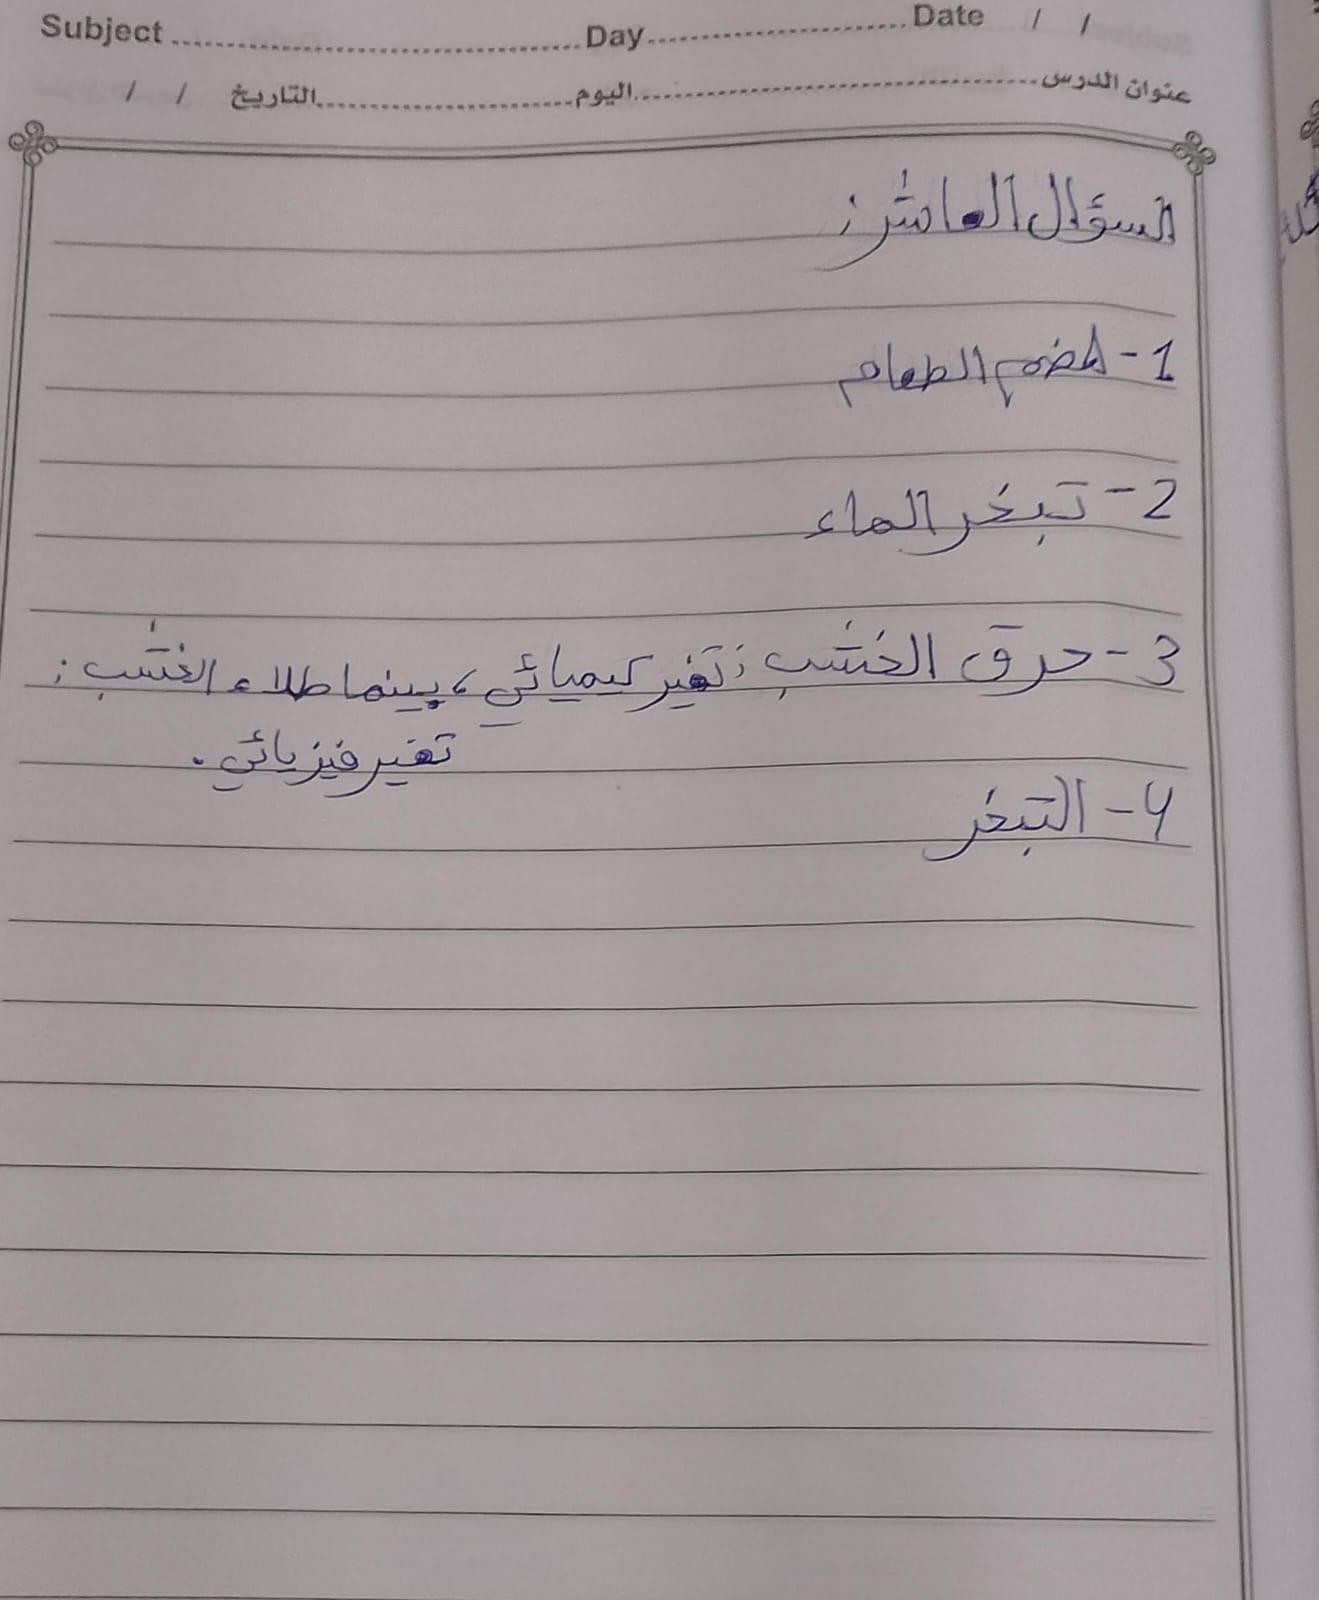 Subject ........ Day ........ Date / /
عنوان الدرس ........ اليوم ........ التاريخ / /
السؤال العاشر:
1- هضم الطعام
2- تبخر الماء
3- حرق الخشب: تغير كيميائي، بينما طلاء الخشب:
تغير فيزيائي.
4- التبخر